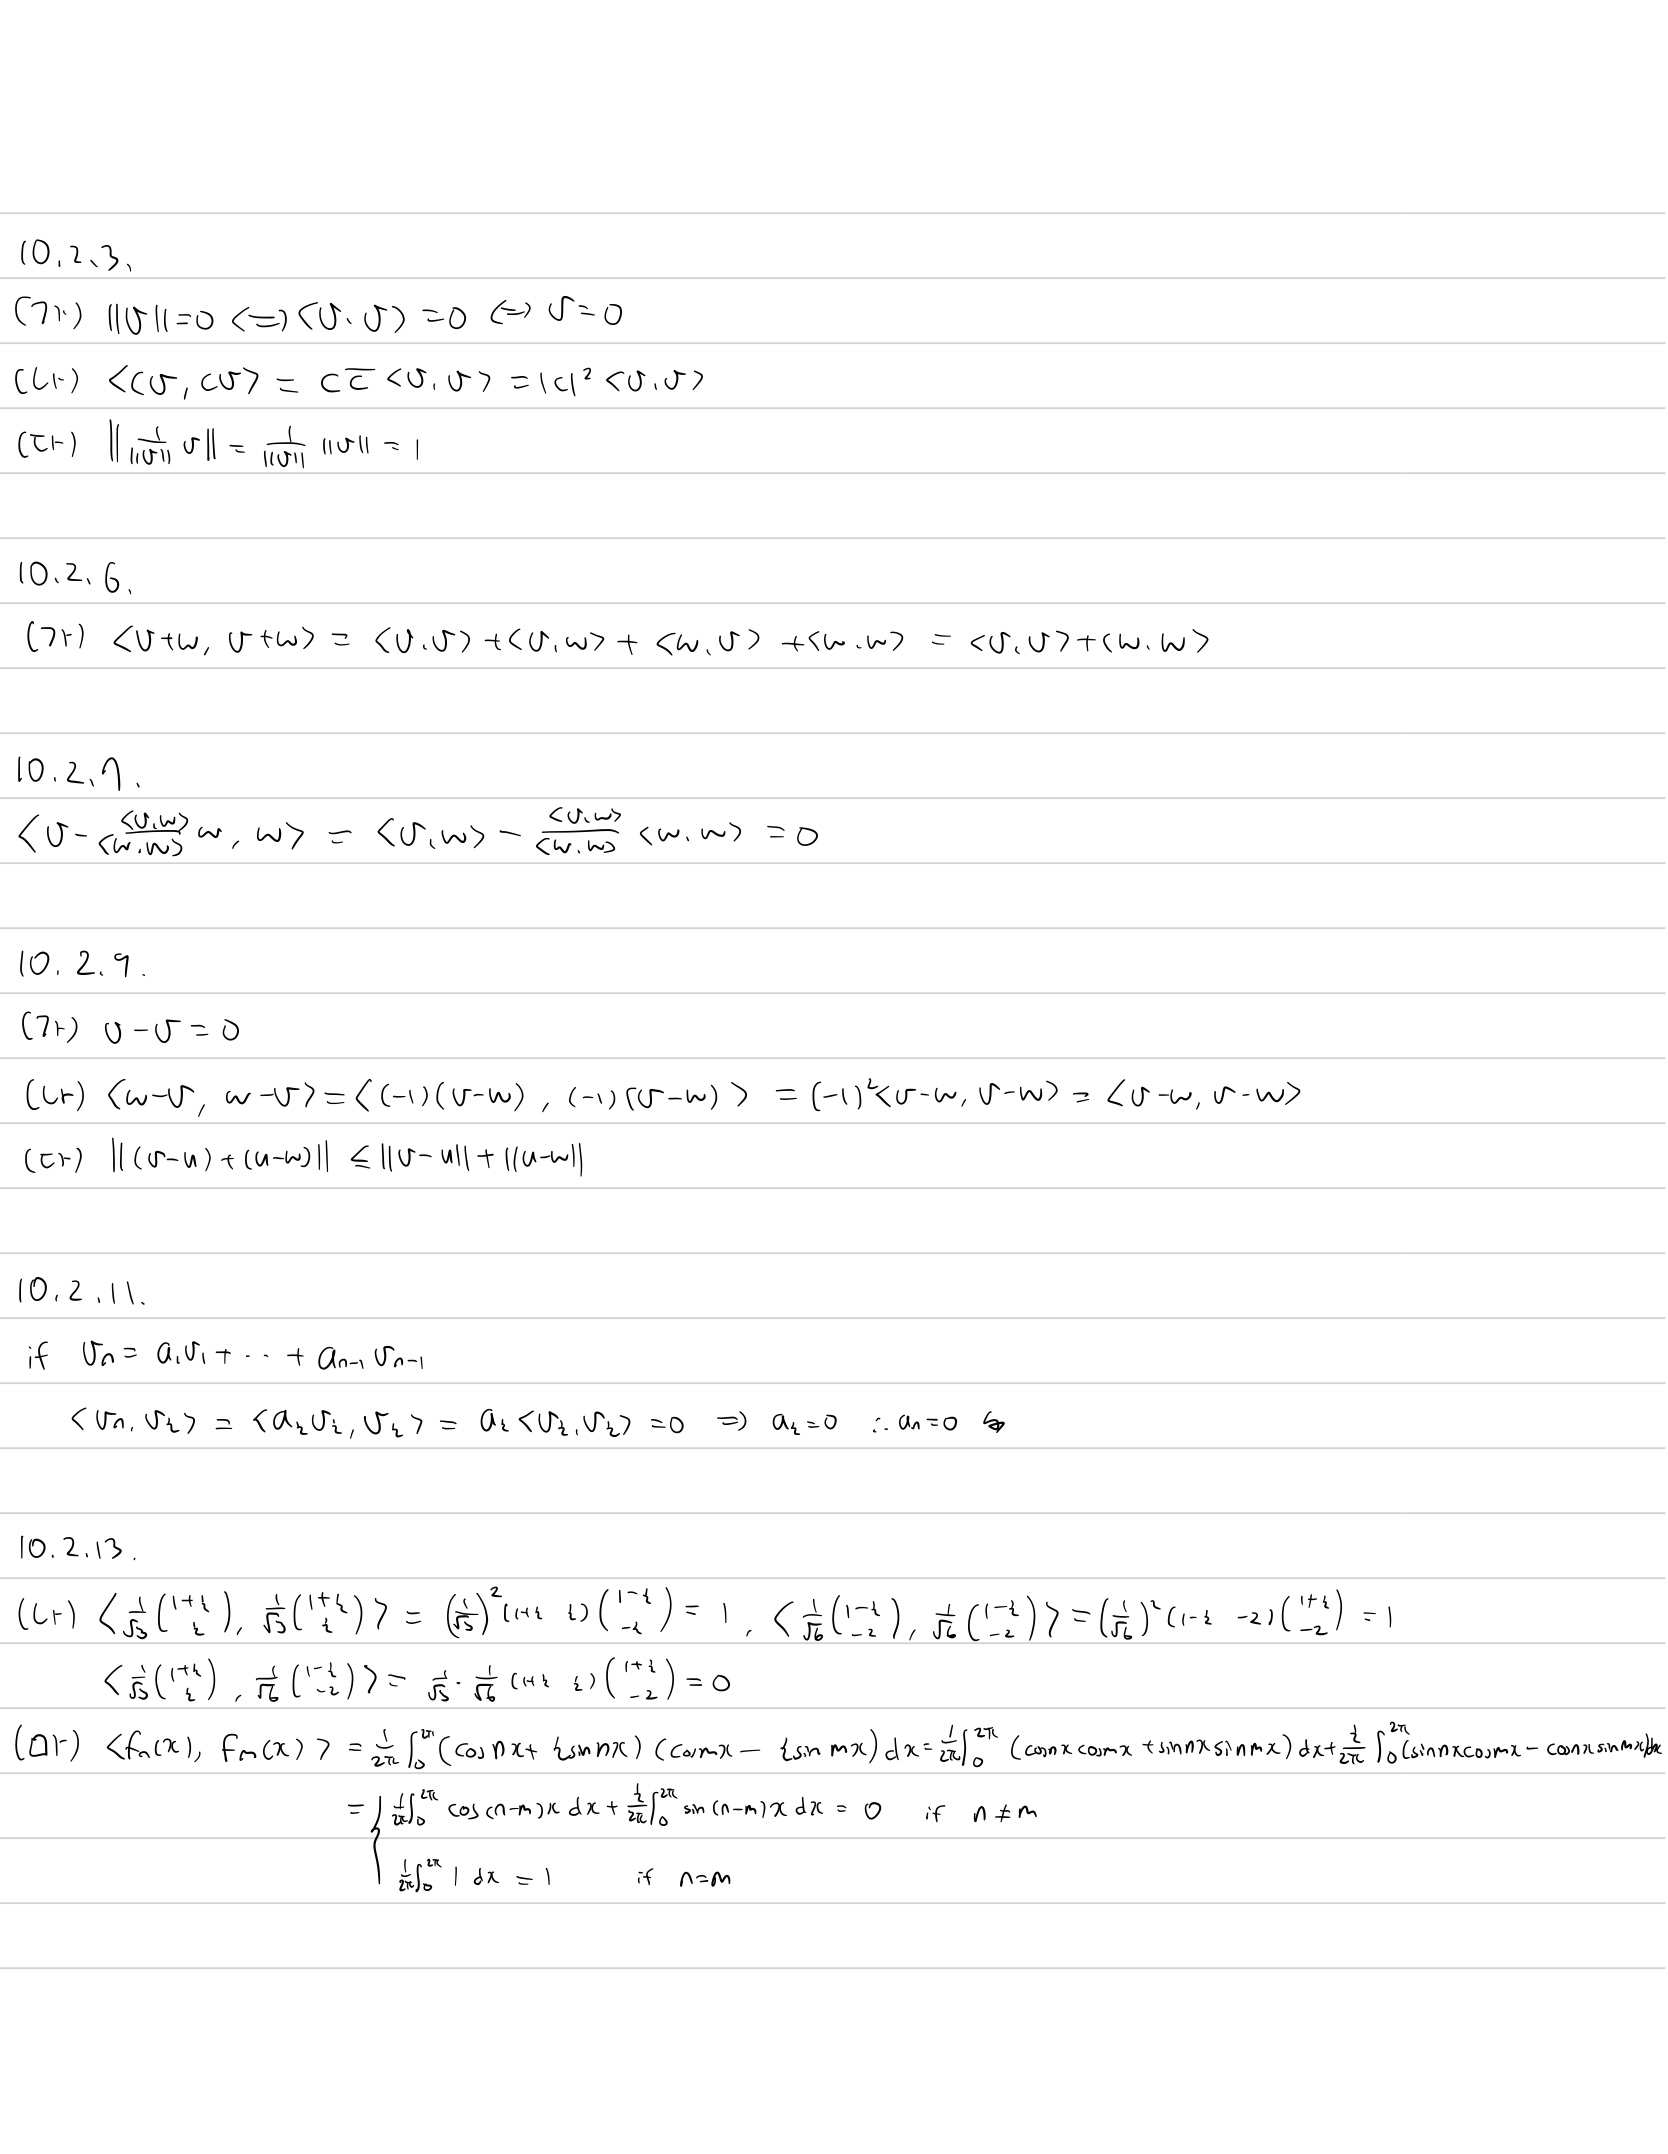 10.2.3.
(가) ||v||=0 <=> <v.v> =0 <=> v=0
(나) <cv, cv> = cc̅ <v.v> = |c|² <v.v>
(다) ||1/||v|| v|| = 1/||v|| ||v|| = 1
10.2.6.
(가) <v+w, v+w> = <v.v> + <v.w> + <w.v> + <w.w> = <v.v> + <w.w>
10.2.7.
<v - <v.w>/<w.w> w, w> = <v.w> - <v.w>/<w.w> <w.w> = 0
10.2.9.
(가) v-v=0
(나) <w-v, w-v> = <(-1)(v-w), (-1)(v-w)> = (-1)²<v-w, v-w> = <v-w, v-w>
(다) ||(v-u)+(u-w)|| ≤ ||v-u|| + ||u-w||
10.2.11.
if vₙ = a₁v₁ + ·· + aₙ₋₁vₙ₋₁
<vₙ, vᵢ> = <aᵢvᵢ, vᵢ> = aᵢ<vᵢ.vᵢ> = 0 => aᵢ=0 ∴ aₙ=0
10.2.13.
(나) <1/√3 (1+i, i), 1/√3 (1+i, i)> = (1/√3)² (1+i i)(1-i, -i) = 1, <1/√6 (1-i, -2), 1/√6 (1-i, -2)> = (1/√6)² (1-i -2)(1+i, -2) = 1
<1/√3 (1+i, i), 1/√6 (1-i, -2)> = 1/√3 · 1/√6 (1+i i)(1+i, -2) = 0
(마) <fₙ(x), fₘ(x)> = 1/2π ∫₀^2π (cos nx + i sin nx)(cos mx - i sin mx) dx = 1/2π ∫₀^2π (cos nx cos mx + sin nx sin mx) dx + i/2π ∫₀^2π (sin nx cos mx - cos nx sin mx) dx
= { 1/2π ∫₀^2π cos(n-m)x dx + i/2π ∫₀^2π sin(n-m)x dx = 0 if n≠m
1/2π ∫₀^2π 1 dx = 1 if n=m